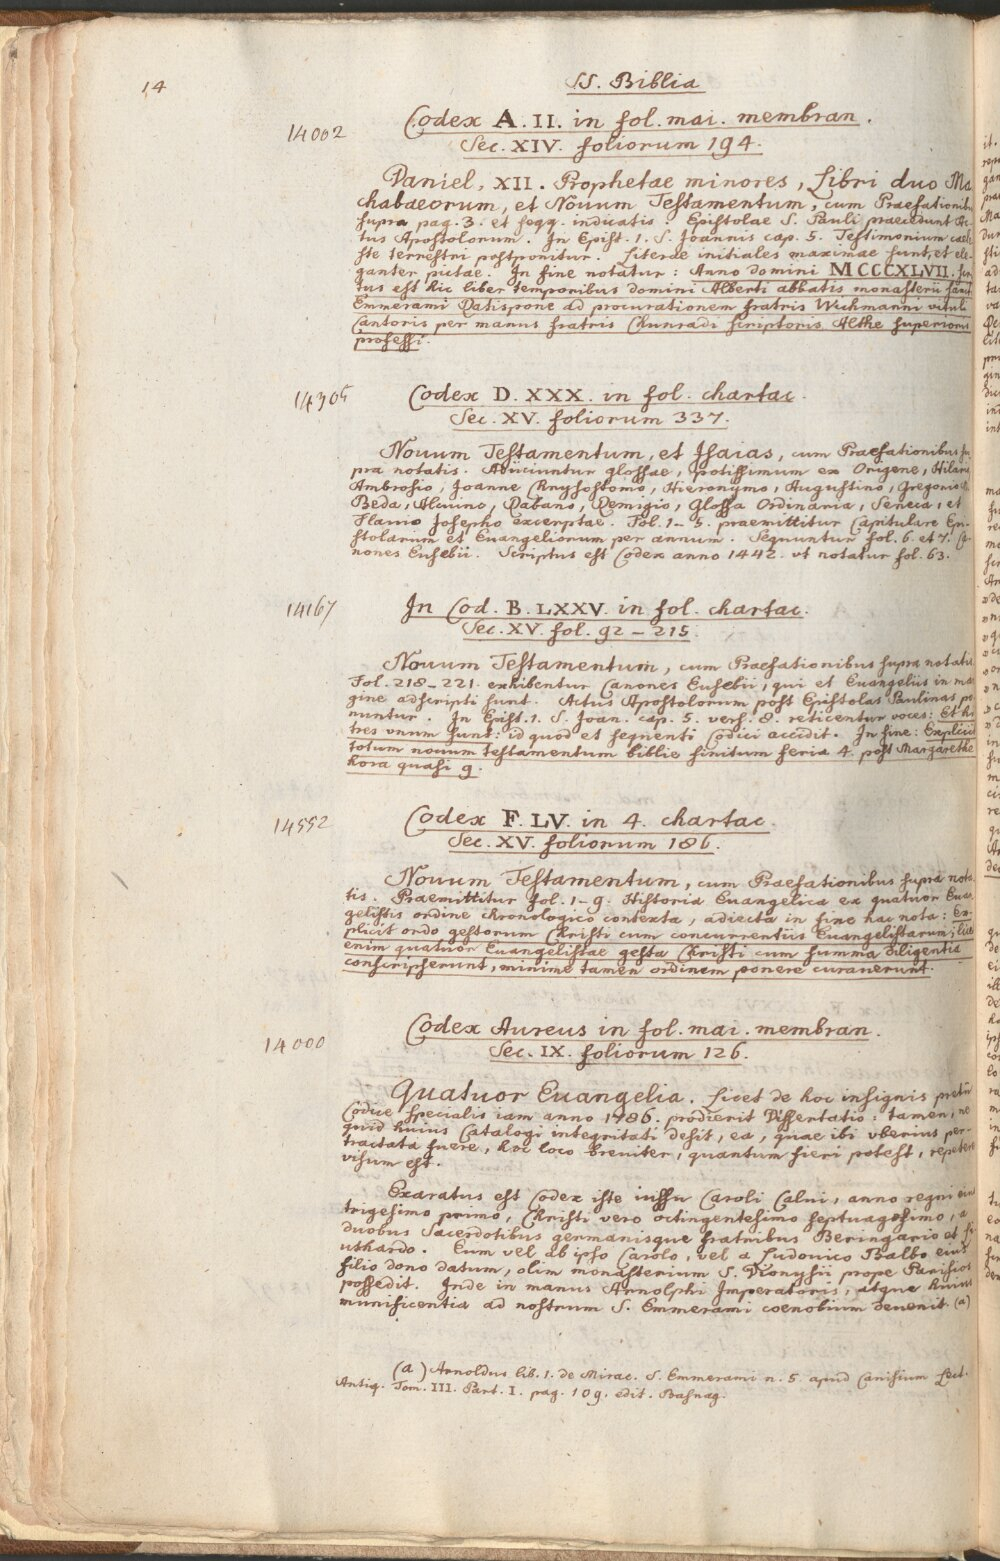 14
SS. Biblia
14002
Codex A. II. in fol. mai. membran.
Sec. XIV. foliorum 194.
Daniel, XII. Prophetae minores, Libri duo Ma
chabaeorum, et Nouum Testamentum, cum Praefationibus
supra pag. 3. et seqq. indicatis. Epistolae S. Pauli praecedunt Ac-
tus Apostolorum. In Epist. 1. S. Joannis cap. 5. Testimonium cael
ste terrestri postponitur. Literae initiales maximae sunt, et ele-
ganter pictae. In fine notatur: Anno domini MCCCXLVII.
tus est hic liber temporibus domini Alberti abbatis monasterii
Emmerami Ratisprone ad procurationem fratris Wichmanni vituli
Cantoris per manus fratris Chunradi scriptoris Althe superioris
professi.
14305
Codex D. XXX. in fol. chartac.
Sec. XV. foliorum 337.
Nouum Testamentum, et Isaias, cum Praefationibus su
pra notatis. Adiiciuntur glossae, potissimum ex Origene, Hilario
Ambrosio, Joanne Chrysostomo, Hieronymo, Augustino, Gregorio
Beda, Alcuino, Rabano, Remigio, Glossa Ordinaria, Seneca, et
Flauio Josepho excerptae. Fol. 1-5. praemittitur Capitulare Epi-
stolarum et Euangeliorum per annum. Sequuntur fol. 6. et 7. Ca-
nones Eusebii. Scriptus est Codex anno 1442. vt notatur fol. 63.
14167
In Cod. B. LXXV. in fol. chartac.
Sec. XV. fol. 92 - 215.
Nouum Testamentum, cum Praefationibus supra notatis
Fol. 218-221. exhibentur Canones Eusebii, qui et Euangeliis in mar
gine adscripti sunt. Actus Apostolorum post Epistolas Paulinas po
nuntur. In Epist. 1. S. Joan. cap. 5. vers. 8. reticentur voces: Et hi
tres vnum sunt: id quod et sequenti Codici accidit. In fine: Explicit
totum nouum testamentum biblie finitum feria 4. post Margarethe
hora quasi 9.
14552
Codex F. LV. in 4. chartac.
Sec. XV. foliorum 186.
Nouum Testamentum, cum Praefationibus supra nota
tis. Praemittitur fol. 1-9. Historia Euangelica ex quatuor Euan
gelistis ordine chronologico contexta, adiecta in fine hac nota: Ex-
plicit ordo gestorum Christi cum concurrentiis Euangelistarum; licet
enim quatuor Euangelistae gesta Christi cum summa diligentia
conscripserunt, minime tamen ordinem ponere curauerunt.
14000
Codex Aureus in fol. mai. membran.
Sec. IX. foliorum 126.
Quatuor Euangelia. Licet de hoc insignis pretii
Codice specialis iam anno 1786. prodierit Dissertatio: tamen, ne
quid huius Catalogi integritati desit, ea, quae ibi vberius per-
tractata fuere, hoc loco breuiter, quantum fieri potest, repetere
visum est.
Exaratus est Codex iste iussu Caroli Calui, anno regni eius
trigesimo primo, Christi vero octingentesimo septuagesimo, a
duobus Sacerdotibus germanisque fratribus Beringario et Li
uthardo. Eum vel ab ipso Carolo, vel a Ludouico Balbo eius
filio dono datum, olim monasterium S. Dionysii prope Parisios
possedit. Inde in manus Arnolphi Imperatoris, atque huius
munificentia ad nostrum S. Emmerami coenobium deuenit. (a)
(a) Arnoldus lib. 1. de Mirac. S. Emmerami n. 5. apud Canisium Lect.
Antiq. Tom. III. Part. I. pag. 109. edit. Basnag.